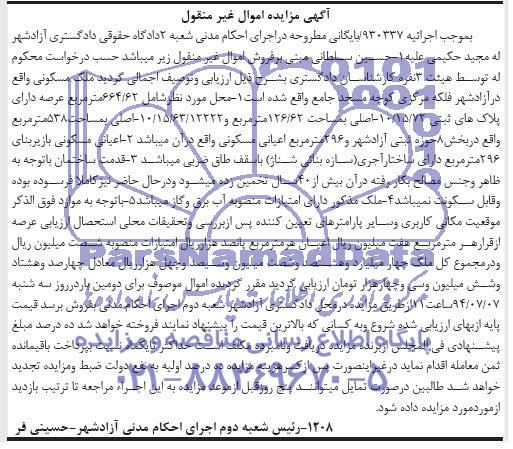 آگهی مزایده اموال غیر منقول
بموجب اجرائیه ۹۳۰۳۳۷/بایگانی مطروحه دراجرای احکام مدنی شعبه ۲دادگاه حقوقی دادگستری آزادشهر
له مجید حکیمی علیه۱-حسین سلطانی مبنی برفروش اموال غیر منقول زیر میباشد حسب درخواست محکوم
له توسط هیئت ۳نفره کارشناسان دادگستری بشرح ذیل ارزیابی وتوصیف اجمالی گردید ملک مسکونی واقع
درآزادشهر فلکه مرکزی کوچه مسجد جامع واقع شده است۱-محل مورد نظرشامل ۶۶۴/۶۲مترمربع عرصه دارای
پلاک های ثبتی ۱۰/۱۵/۷۲-اصلی بمساحت ۱۲۶/۶۲مترمربع و۱۰/۱۵/۶۳/۱۲۲۲۲-اصلی بمساحت۵۳۸مترمربع
واقع دربخش۸حوزه ثبتی آزادشهر و۲۹۶مترمربع اعیانی مسکونی واقع درآن میباشد ۲-اعیانی مسکونی بازیربنای
۲۹۶مترمربع دارای ساختارآجری(سازه بنائی شناژ) باسقف طاق ضربی میباشد ۳-قدمت ساختمان باتوجه به
ظاهر وجنس مصالح بکار رفته درآن بیش از۴۰سال تخمین زده میشود ودرحال حاضر نیزکاملا فرسوده بوده
وقابل سکونت نمیباشد۴-ملک مذکور دارای امتیازات منصوبه آب برق وگاز میباشد۵-باتوجه به موارد فوق الذکر
موقعیت مکانی کاربری وسایر پارامترهای تعیین کننده پس ازبررسی وتحقیقات محلی استحصال ارزیابی عرصه
ازقرارهر مترمربع هفت میلیون ریال اعیان هرمترمربع پانصد هزارریال امتیازات منصوبه شصت میلیون ریال
ودرمجموع کل ملک چهار میلیارد وهشتصد وشصت میلیون وسیصد وچهل هزارریال معادل چهارصد وهشتاد
وشش میلیون وسی وچهارهزار تومان ارزیابی گردید مقرر گردیده اموال موصوف برای دومین باردرروز سه شنبه
۹۴/۰۷/۰۷ساعت۱۱ازطریق مزایده درمحل دادگستری آزادشهر شعبه دوم اجرای احکام مدنی بفروش برسد قیمت
پایه ازبهای ارزیابی شده شروع وبه کسانی که بالاترین قیمت را پیشنهاد نمایند فروخته خواهد شد ده درصد مبلغ
پیشنهادی فی المجلس ازبرنده مزایده دریافت ونامبرده مکلف است حداکثر ظرف یکماه نسبت بپرداخت باقیمانده
ثمن معامله اقدام نماید درغیراینصورت پس ازکسرهزینه مزایده ده درصد اولیه به نفع دولت ضبط ومزایده تجدید
خواهد شد طالبین درصورت تمایل میتوانند پنج روزقبل ازموعد مزایده به این اجراء مراجعه تا ترتیب بازدید
ازموردمورد مزایده داده شود.
۱۲۰۸-رئیس شعبه دوم اجرای احکام مدنی آزادشهر-حسیتی فر
ParsNamadData
پایگاه اطلاع رسانی مناقصه و مزایده
۰۲۱-۸۸۳۴۹۶۷۰-۵